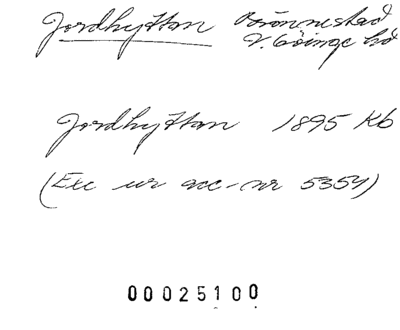 Jordhyttan Brönnestad
V. Göinge hd
Jordhyttan 1895 Kb
(Exc ur acc-nr 5354)
00025100